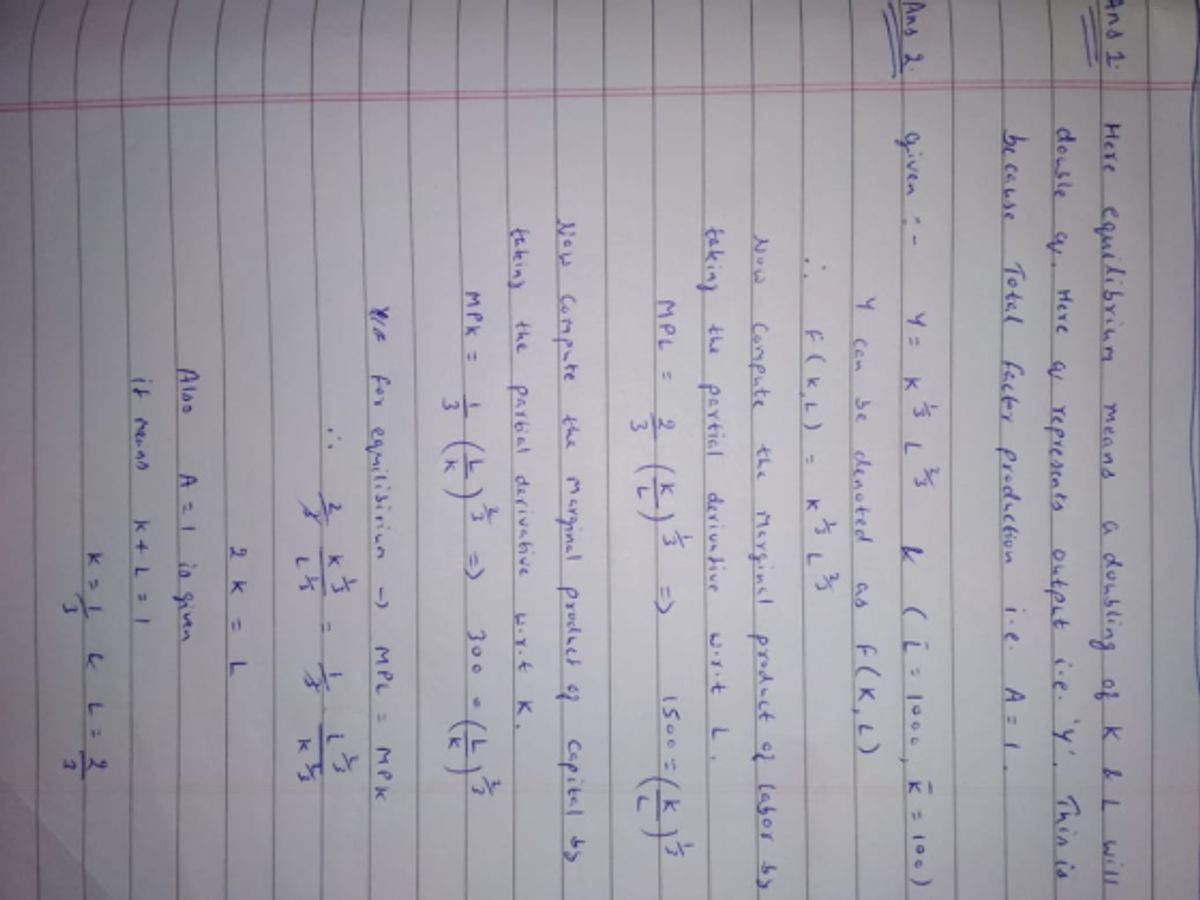 Ans 1. Here equilibrium means a doubling of K & L will
double q. Here q represents output i.e. 'y'. This is
because Total factor production i.e. A = 1.
Ans 2. given :- Y = K^1/3 L^2/3 & ( L̄ = 1000, K̄ = 100)
Y can be denoted as F(K,L)
∴ F(K,L) = K^1/3 L^2/3
Now compute the Marginal product of labor by
taking the partial derivative w.r.t L.
MPL = 2/3 (K/L)^1/3 => 1500 = (K/L)^1/3
Now compute the marginal product of capital by
taking the partial derivative w.r.t K.
MPK = 1/3 (L/K)^2/3 => 300 = (L/K)^2/3
for equilibirium → MPL = MPK
∴ 2/3 K^1/3/L^1/3 = 1/3 . L^2/3/K^2/3
2K = L
Also A = 1 is given
it means K + L = 1
K = 1/3 & L = 2/3